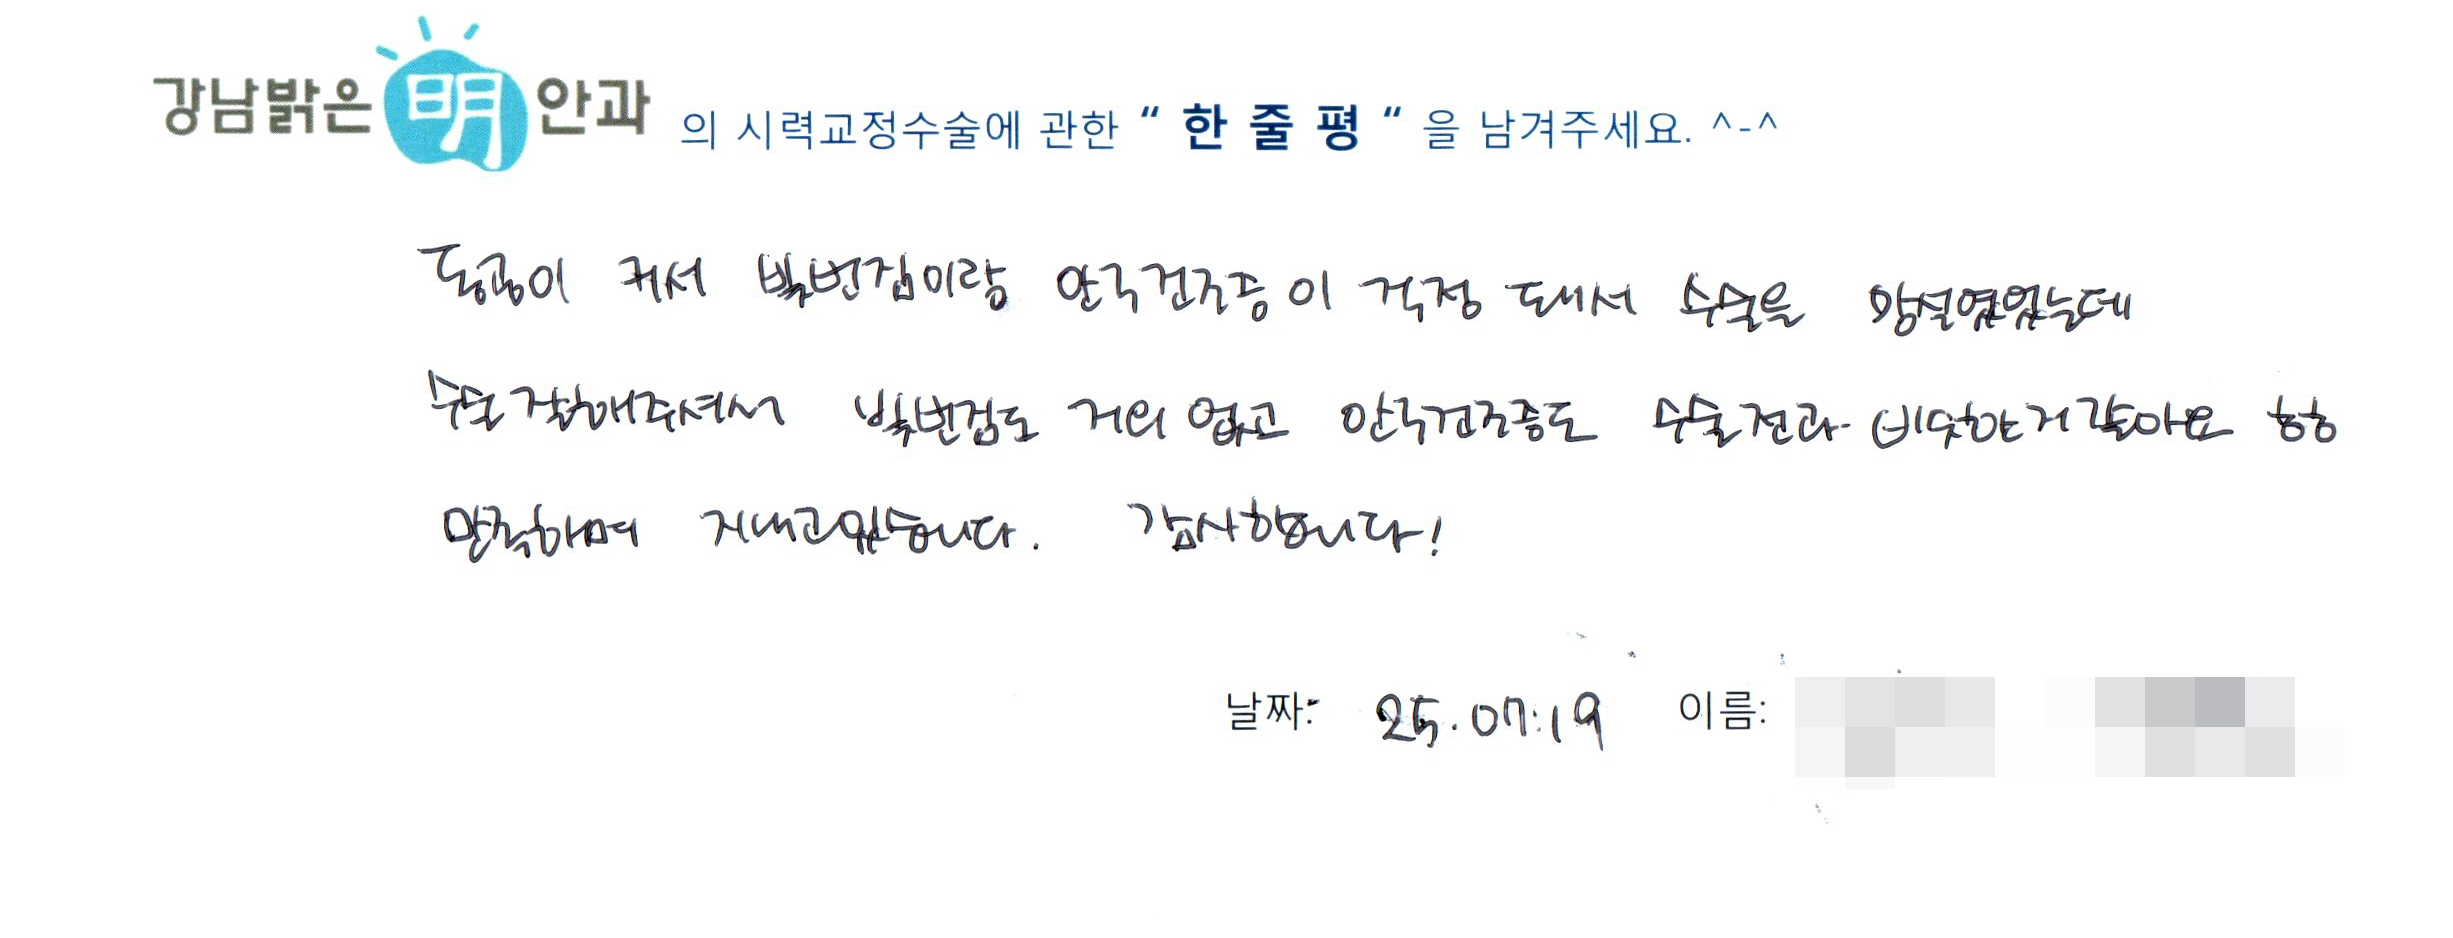 강남밝은明안과 의 시력교정수술에 관한 “ 한 줄 평 “ 을 남겨주세요. ^-^
동공이 커서 빛번짐이랑 안구건조증이 걱정 돼서 수술을 망설였었는데
수술 잘해주셔서 빛번짐도 거의 없고 안구건조증도 수술전과 비슷한거 같아요 ㅎㅎ
만족하며 지내고있습니다. 감사합니다!
날짜: 25.07.19 이름: